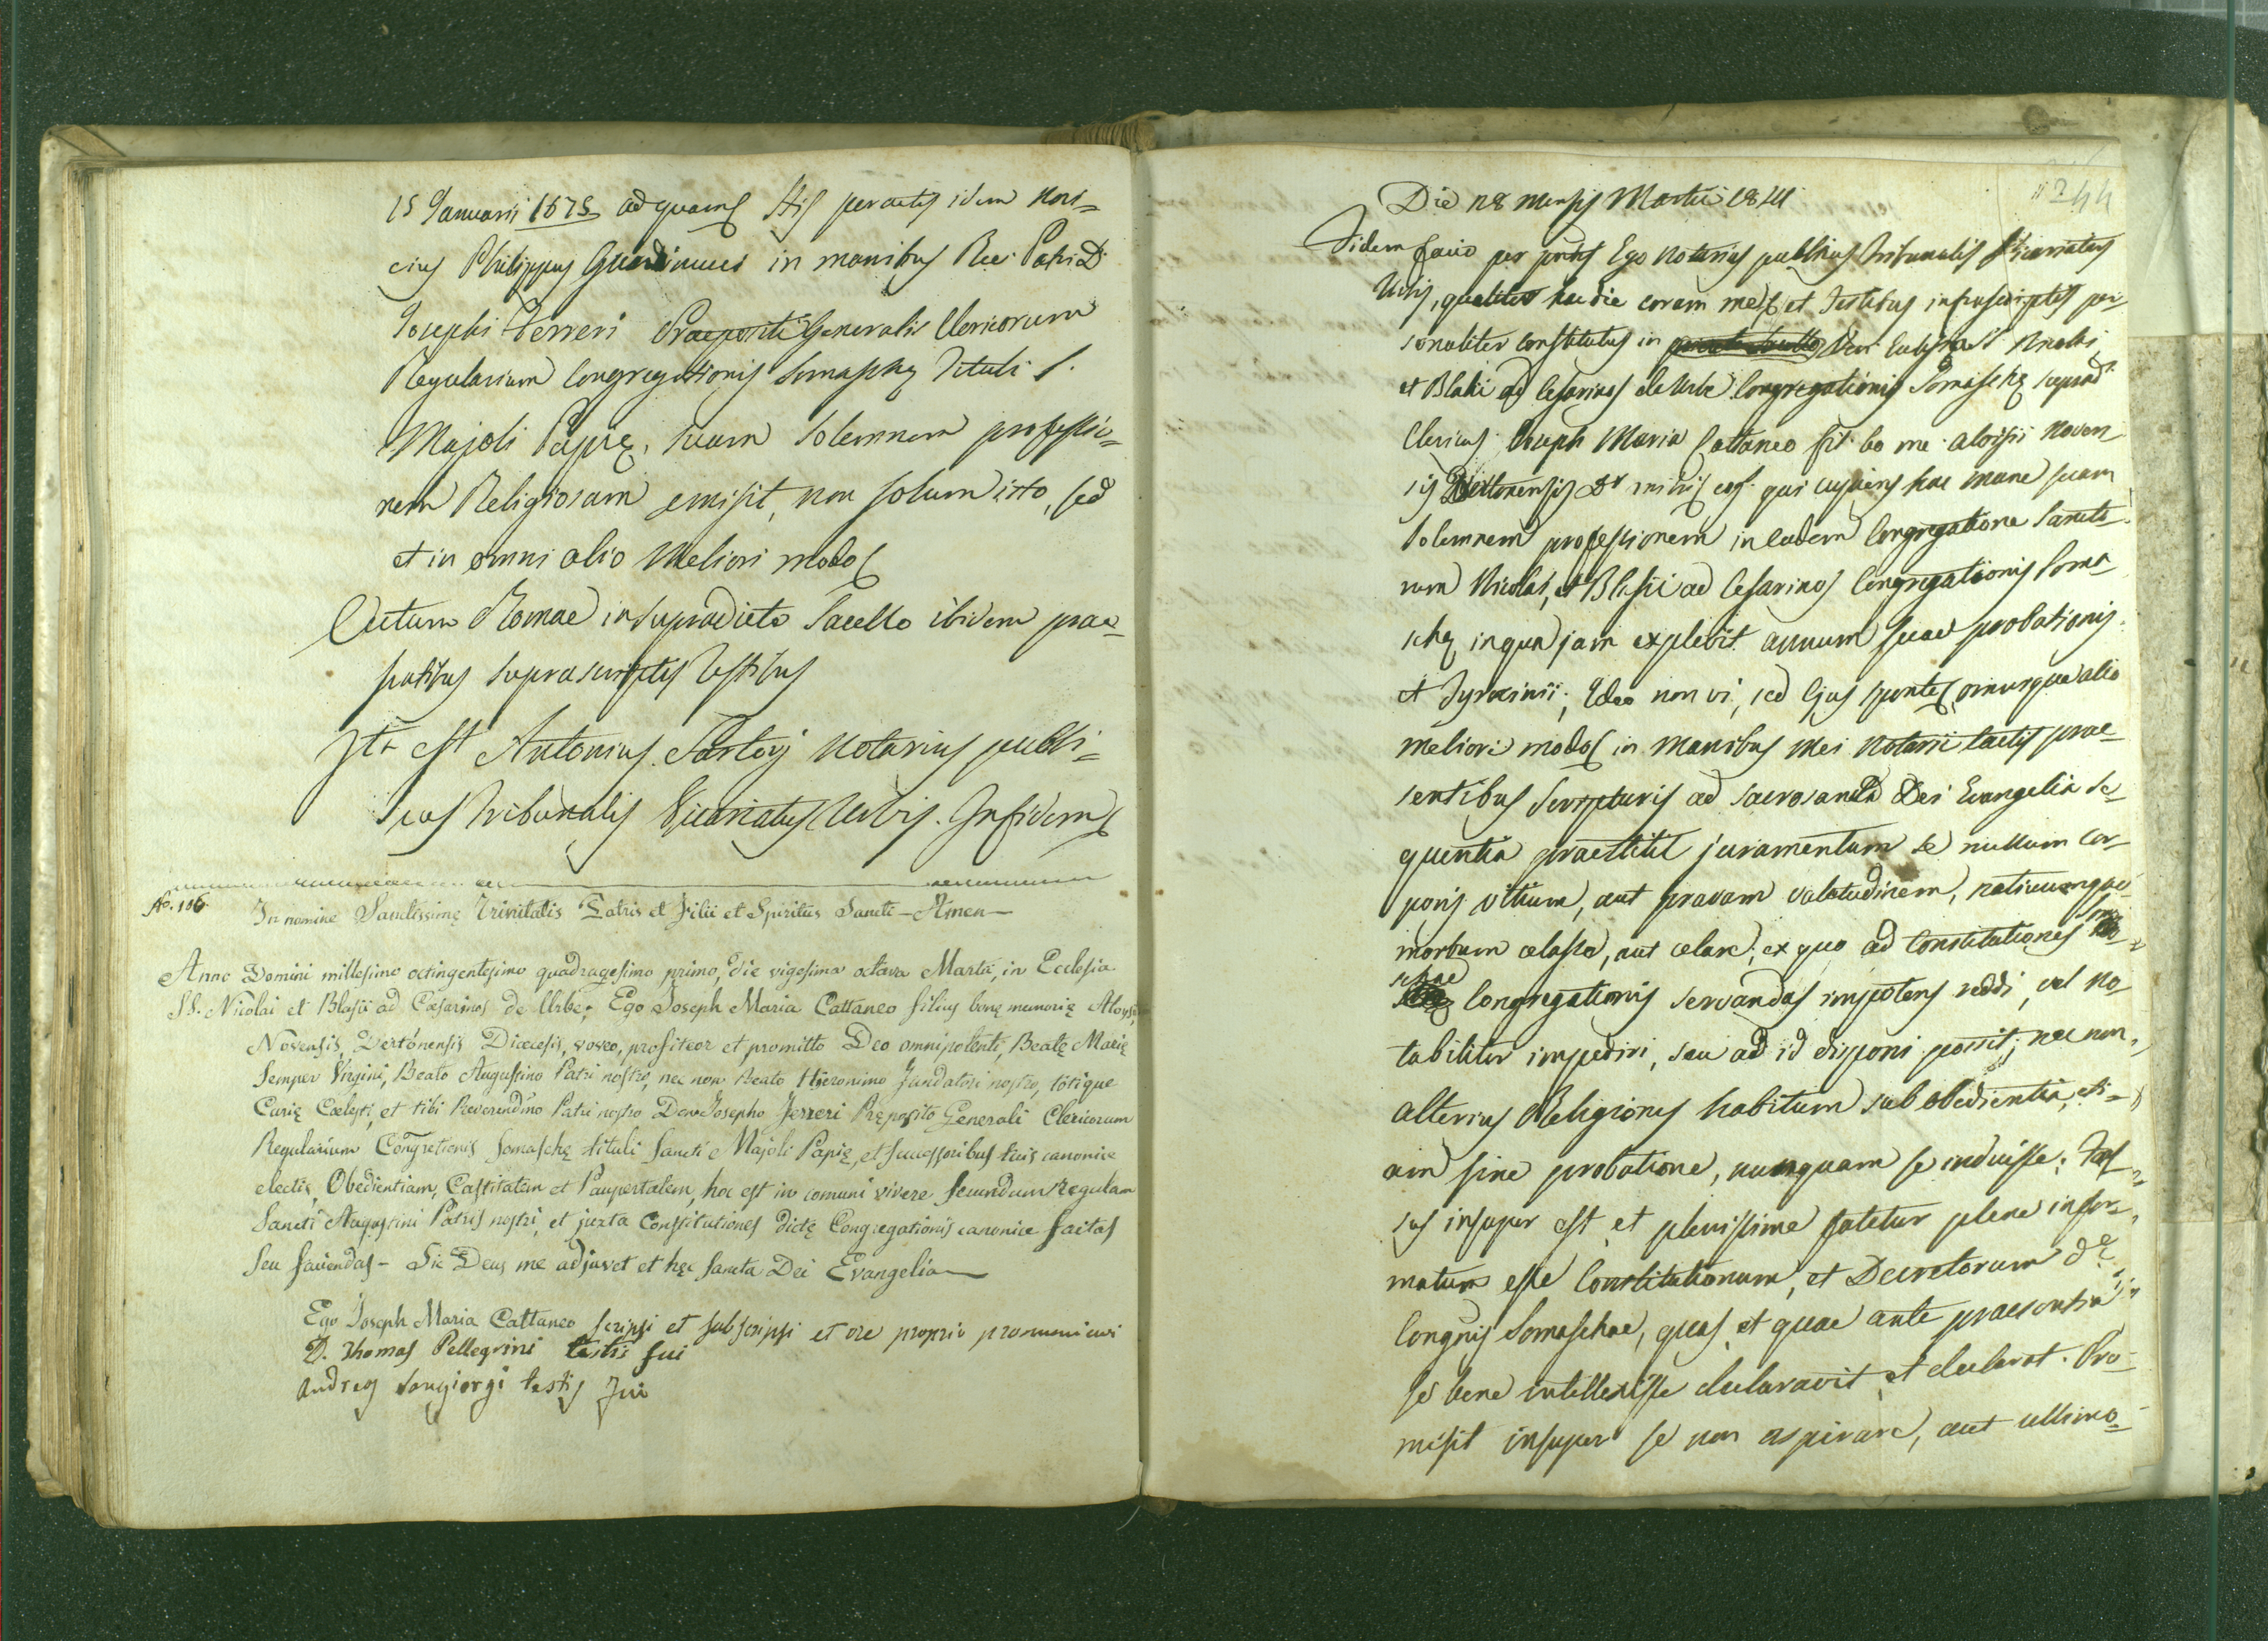 15 Januarii 1675 ad quam His peractis idem Novi=
cius Philippus in manibus Rev: Patris D.
Josephi Ferreri Praepositi Generalis Clericorum
Regularium Congregationis Somaschę Tituli S.
Majoli Papię, suam solemnem professio=
nem Religiosam emisit, non solum isto, sed
et in omni alio meliori modo
Actum Romae in supradicto Sacello ibidem prae=
sentibus suprascriptis Testibus
Ita est Antonius Sartorj Notarius publi=
cus Tribunalis Vicariatus Urbis. In fidem
No. 106
In nomine Sanctissimę Trinitatis Patris et Filii et Spiritus Sancti - Amen
Anno Domini millesimo octingentesimo quadragesimo primo, die vigesima octava Martii, in Ecclesia
SS. Nicolai et Blasii ad Cæsarinos de Urbe; Ego Joseph Maria Cattaneo filius bonę memorię Aloysii
Novensis, Dertonensis Diœcesis, voveo, profiteor et promitto Deo omnipotenti, Beatę Marię
Semper Virgini, Beato Augustino Patri nostro, nec non Beato Hieronimo Fundatori nostro, totique
Curię Cœlesti, et tibi Reverendmo Patri nostro Dno Josepho Ferreri Pręposito Generali Clericorum
Regularium Congretionis Somaschę tituli Sancti Majoli Papię, et successoribus tuis canonice
electis, Obedientiam, Castitatem et Paupertatem, hoc est in comuni vivere secundum regulam
Sancti Augustini Patris nostri, et juxta Constitutiones dictę Congregationis canonice factas
seu faciendas - Sic Deus me adjuvet et hęc Sancta Dei Evangelia
Ego Joseph Maria Cattaneo scripsi et subscripsi et ore proprio pronunciavi
D. Thomas Pellegrini testis fui
Andreas Sangiorgi testis fui
244
Die 28 mensis Martii 1841
Fidem facio per pntes Ego Notarius publicus Tribunalis Vicariatus
Urbis, qualiter hac die coram me et Testibus infrascriptis per
sonaliter constitutus in Ven: Eccles: SS Nicolai
et Blasii ad Cesarinos de Urbe Congregationis Somaschę suprad:
Clericus Joseph Maria Cattaneo fil: bo me: Aloisii Noven
sis Dertonensis mihi cog: qui cupiens hac mane suam
solemnem professionem in eadem Congregatione Sancto
rum Nicolai, et Blasii ad Cesarinos Congregationis Soma
schę in qua jam explevit annum suae probationis
et Tyrocinii; Ideo non vi, sed Ejus sponte omnique alio
meliori modo in manibus mei Notarii tactis prae
sentibus Scripturis ad sacrosancta Dei Evangelia se
quentia praestitit juramentum se nullum cor
poris vitium, aut pravam valetudinem, nec
morbum celasse, aut celare; ex quo ad Constitutiones Soma
schae Congregationis servandas impotens reddi, vel no
tabiliter impediri, seu ad id disponi possit; nec non
alterius Religionis habitum sub obedientia, eti=
am sine probatione, nunquam se induisse; Fas=
sus insuper est et plenissime fatetur plene infor=
matum esse Constitutionum, et Decretorum dę
Congnis Somaschae, quas, et quae ante praesentia
se bene intellexisse declaravit et declarat. Pro=
misit insuper se non aspirare, aut ullimo=